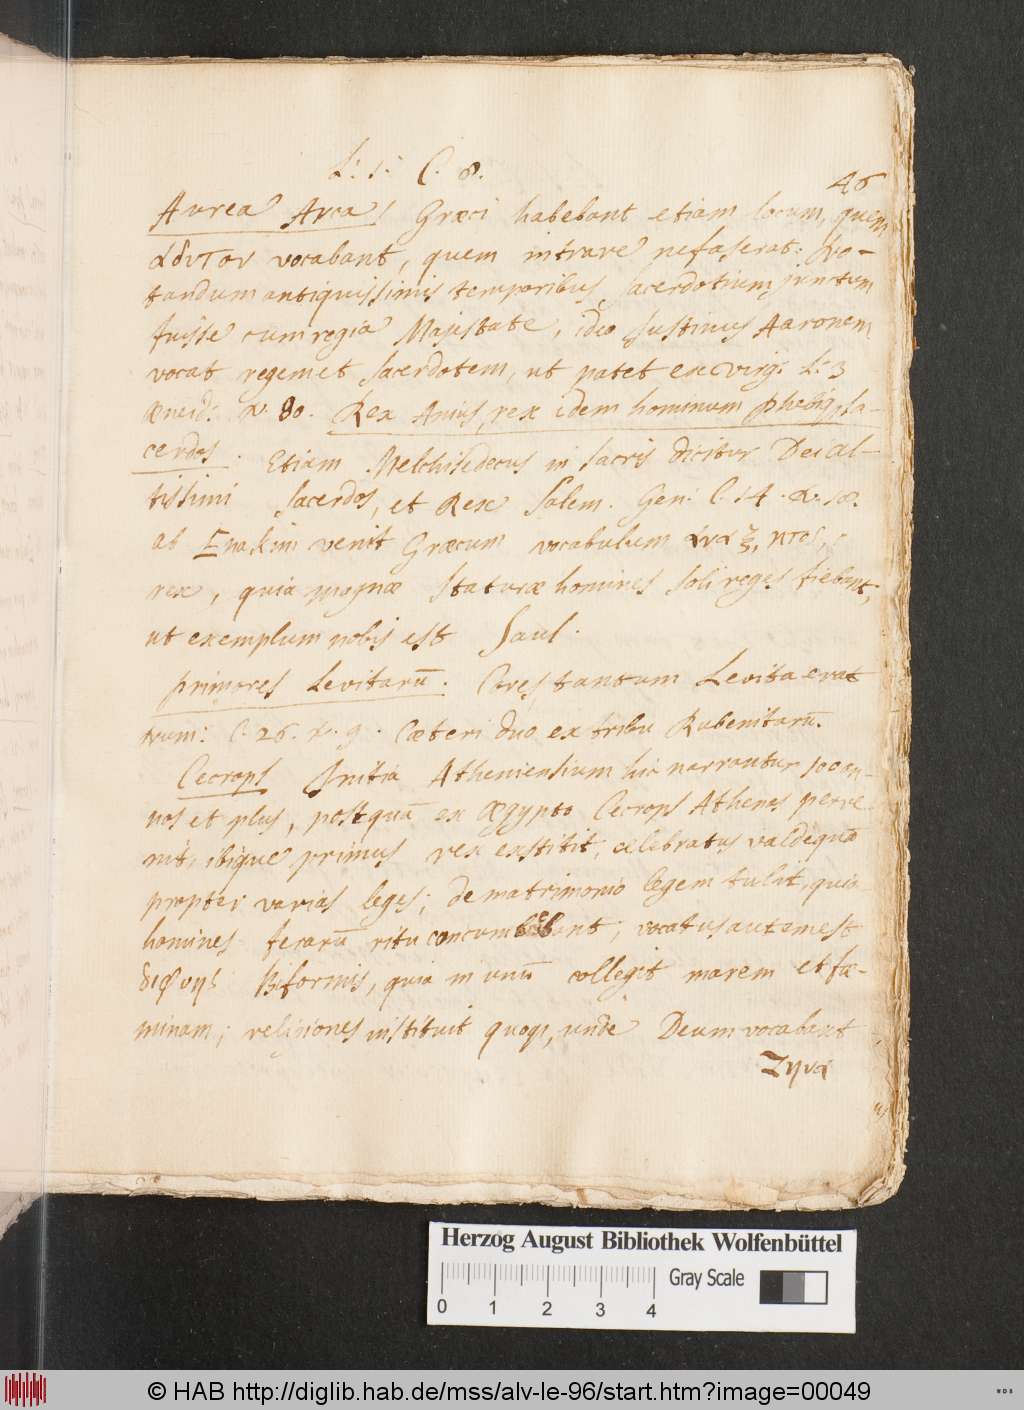 L: 1: C. 8.
46
Aurea Arca! Græci habebant etiam locum, quem
αδυτον vocabant, quem intrare nefaserat: No-
tandum antiquissimis temporibus, sacerdotium junctum
fuisse cum regia Majestate, ideo Justinus Aaronem
vocat regem et sacerdotem, ut patet ex Virg: L: 3
Æneid: v. 80. Rex Anius, rex idem hominum phœbiq sa-
cerdos. Etiam Melchisedecus in sacris dicitur Dei al-
tissimi sacerdos, et Rex Salem. Gen: C. 14. v. 18.
ab Enakim venit Græcum vocabulum αναξ, κτος,
rex, quia magnæ staturæ homines soli reges fiebant,
ut exemplum nobis est Saul.
primores Levitarū. Cores tantum Levita erat
num: C. 26. v. 9. Cæteri duo ex tribu Rubenitarū.
Cecrops Initia Atheniensium hic narrantur 100 an-
nos et plus, postquā ex Ægypto Cecrops Athenas perve-
nit, ibique primus rex exstitit, celebratus valde quā
propter varias leges; de matrimonio legem tulit, quia
homines ferarū ritu concumbebant; vocatus autem est
διφυης Biformis, quia in unū collegit marem et fœ-
minam; religiones instituit quoq, unde Deum vocabant
Ζηνα
Herzog August Bibliothek Wolfenbüttel
Gray Scale
0 1 2 3 4
© HAB http://diglib.hab.de/mss/alv-le-96/start.htm?image=00049